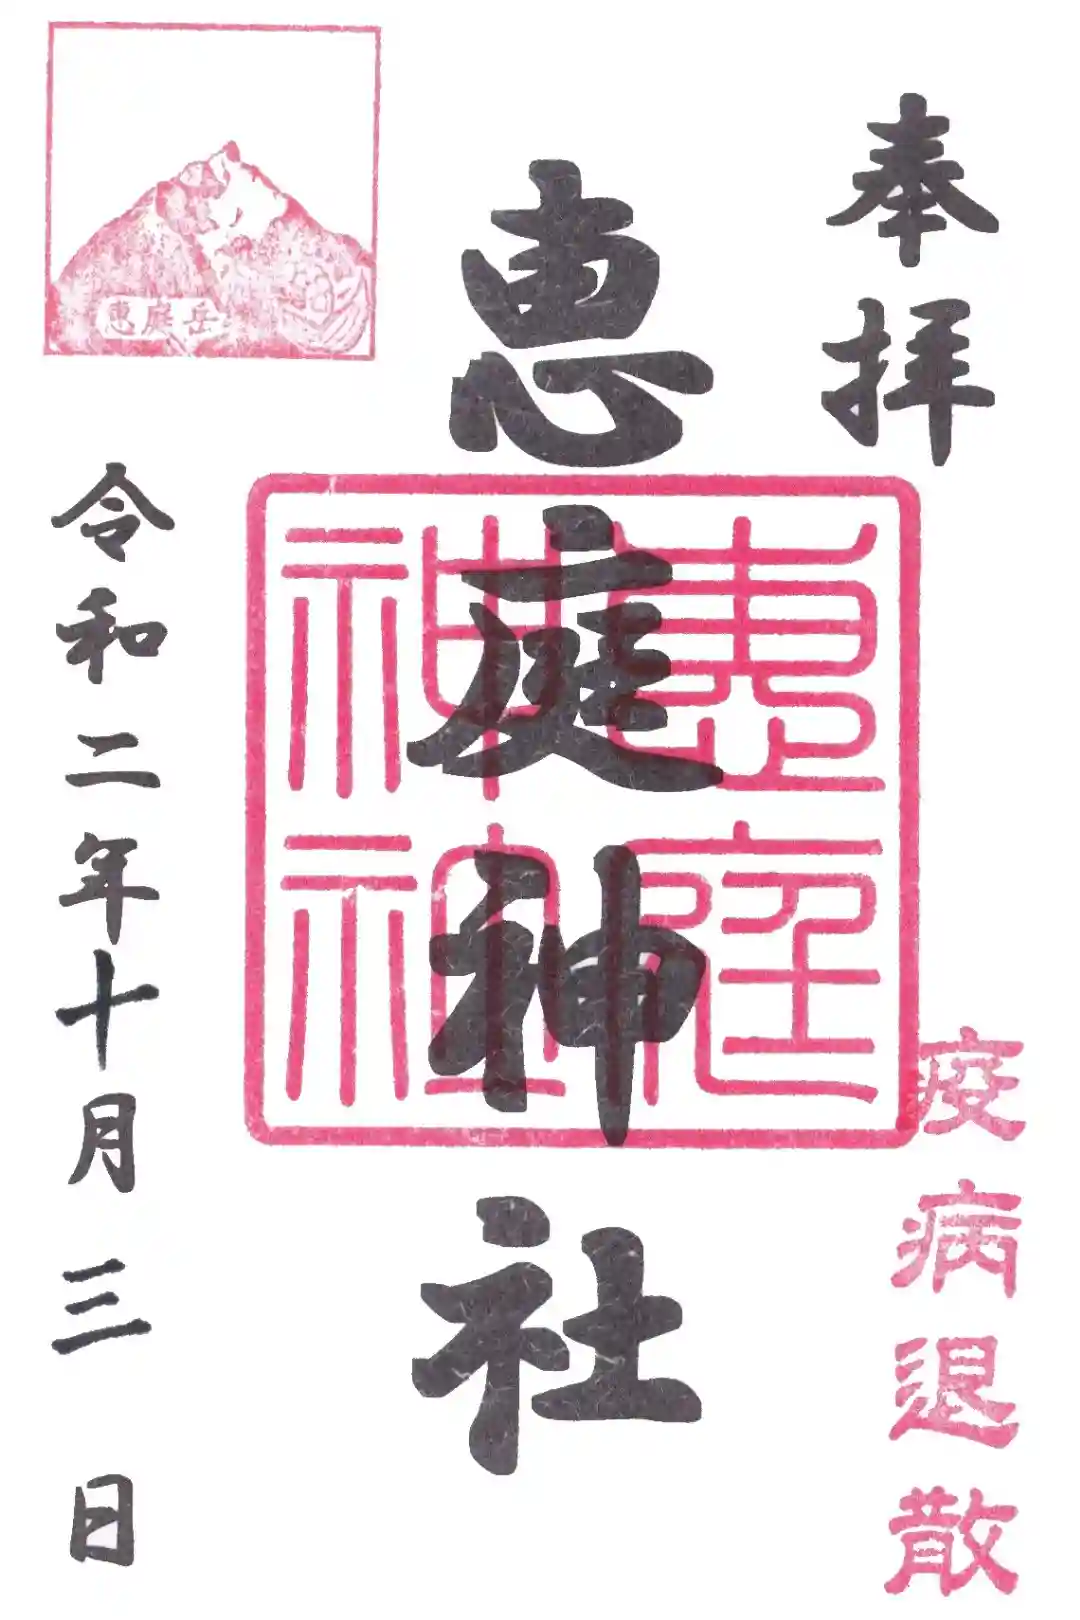 奉拝
疫病退散
恵庭神社
惠庭神社
恵庭岳
令和二年十月三日